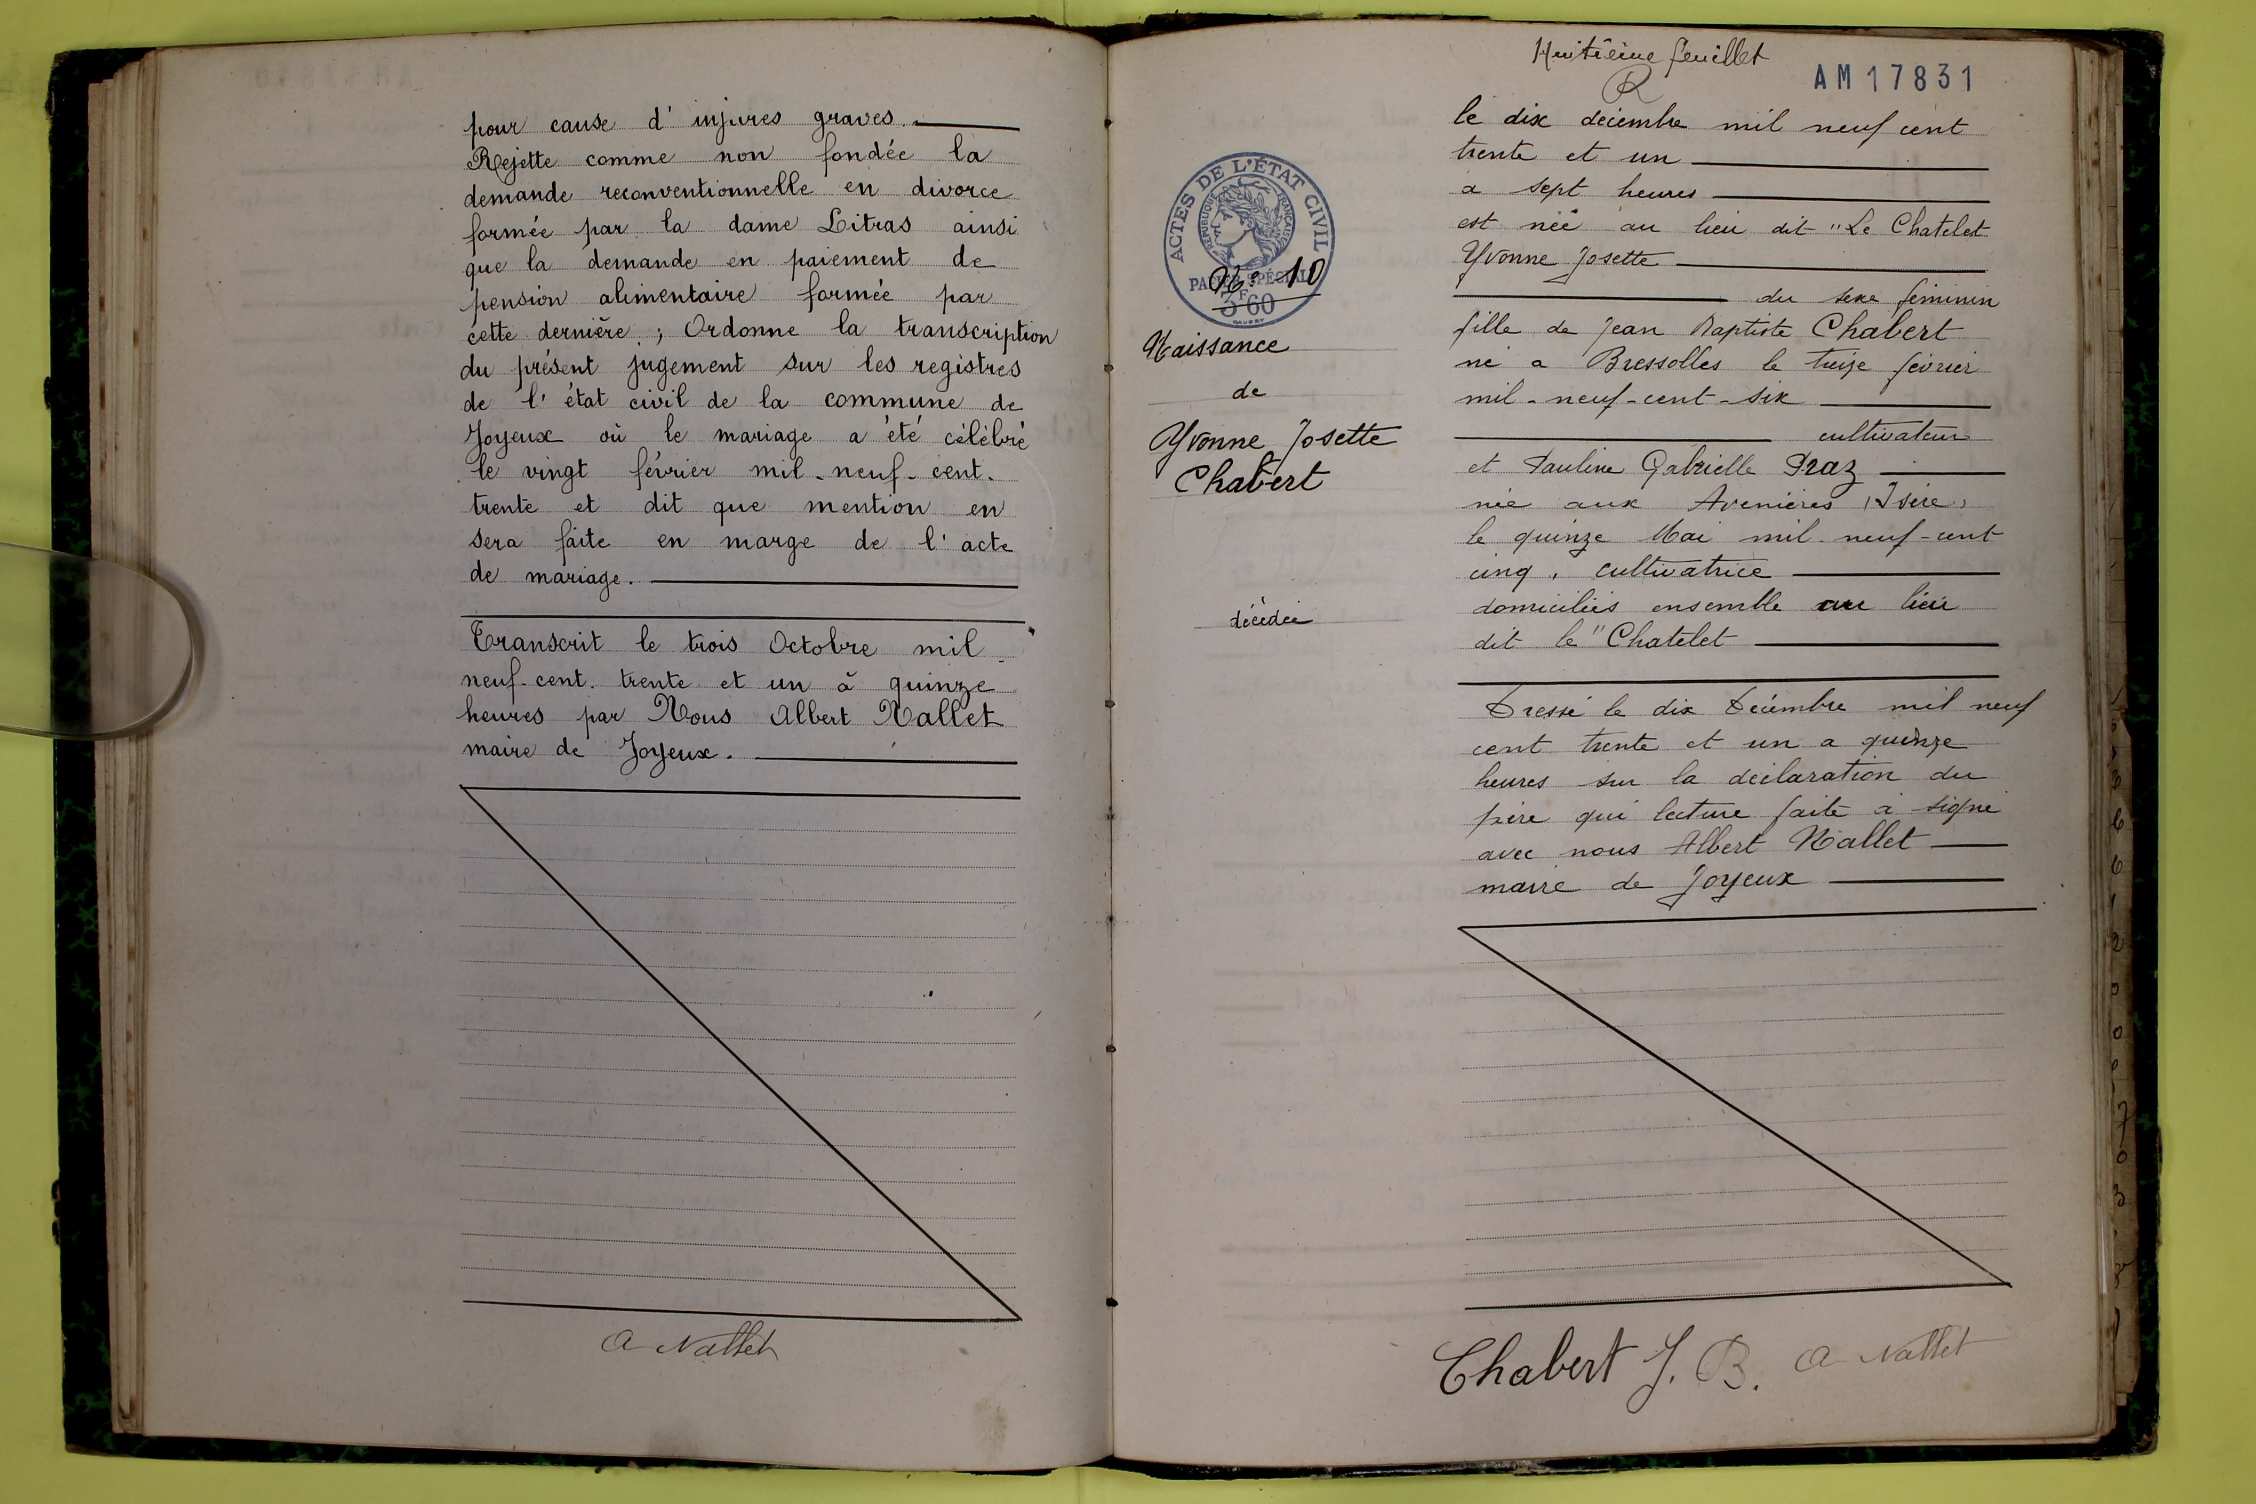 pour cause d'injures graves.
Rejette comme non fondée la
demande reconventionnelle en divorce
formée par la dame Litras ainsi
que la demande en paiement de
pension alimentaire formée par
cette dernière ; Ordonne la transcription
du présent jugement sur les registres
de l'état civil de la commune de
Joyeux où le mariage a été célébré
le vingt février mil-neuf-cent-
trente et dit que mention en
sera faite en marge de l'acte
de mariage.
Transcrit le trois Octobre mil
neuf-cent-trente et un à quinze
heures par Nous Albert Nallet
maire de Joyeux.
A Nallet
Huitième feuillet
AM17831
ACTES DE L'ÉTAT CIVIL
RÉPUBLIQUE FRANÇAISE
PAPIER SPÉCIAL
3F60
No 10
Naissance
de
Yvonne Josette
Chabert
décédée
le dix décembre mil neuf cent
trente et un
a sept heures
est née au lieu dit "Le Chatelet
Yvonne Josette
du sexe féminin
fille de Jean Baptiste Chabert
né a Bressolles le treize février
mil-neuf-cent-six
cultivateur
et Pauline Gabrielle Praz
née aux Avenières (Isère)
le quinze Mai mil-neuf-cent
cinq, cultivatrice
domiciliés ensemble au lieu
dit le "Chatelet
Dressé le dix Décembre mil neuf
cent trente et un a quinze
heures sur la déclaration du
père qui lecture faite a signé
avec nous Albert Nallet
maire de Joyeux
Chabert J. B. A Nallet